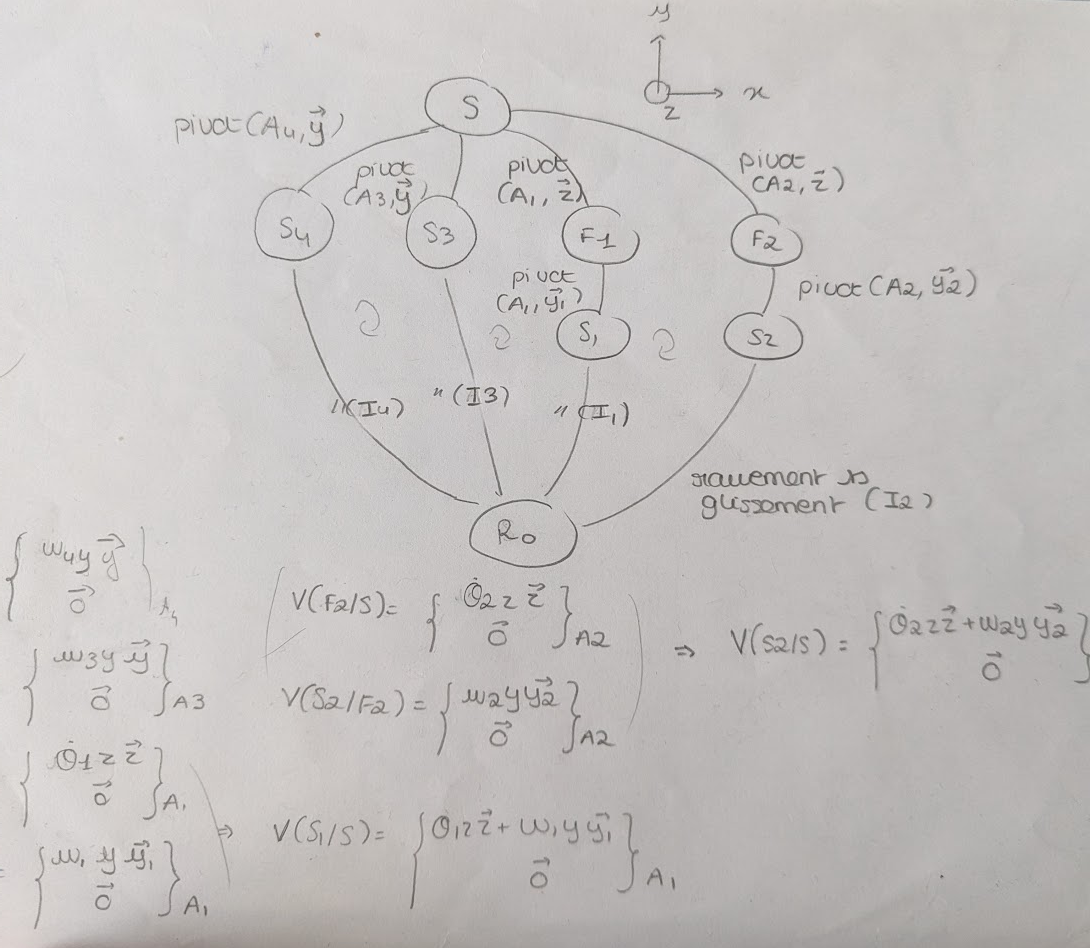 y
x
z
S
pivot (A4, y⃗)
pivot
(A3, y⃗)
pivot
(A1, z⃗)
pivot
(A2, z⃗)
S4
S3
F1
F2
pivot
(A1, y⃗1)
pivot (A2, y⃗2)
S1
S2
"(I4)
"(I3)
"(I1)
glissement (I2)
R0
{ ω4y y⃗
0⃗ }A4
{ ω3y y⃗
0⃗ }A3
{ θ̇1z z⃗
0⃗ }A1
= { ω1y y⃗1
0⃗ }A1
V(F2/S) = { θ̇2z z⃗
0⃗ }A2
V(S2/F2) = { ω2y y⃗2
0⃗ }A2
⇒ V(S2/S) = { θ̇2z z⃗ + ω2y y⃗2
0⃗ }
⇒ V(S1/S) = { θ̇1z z⃗ + ω1y y⃗1
0⃗ }A1